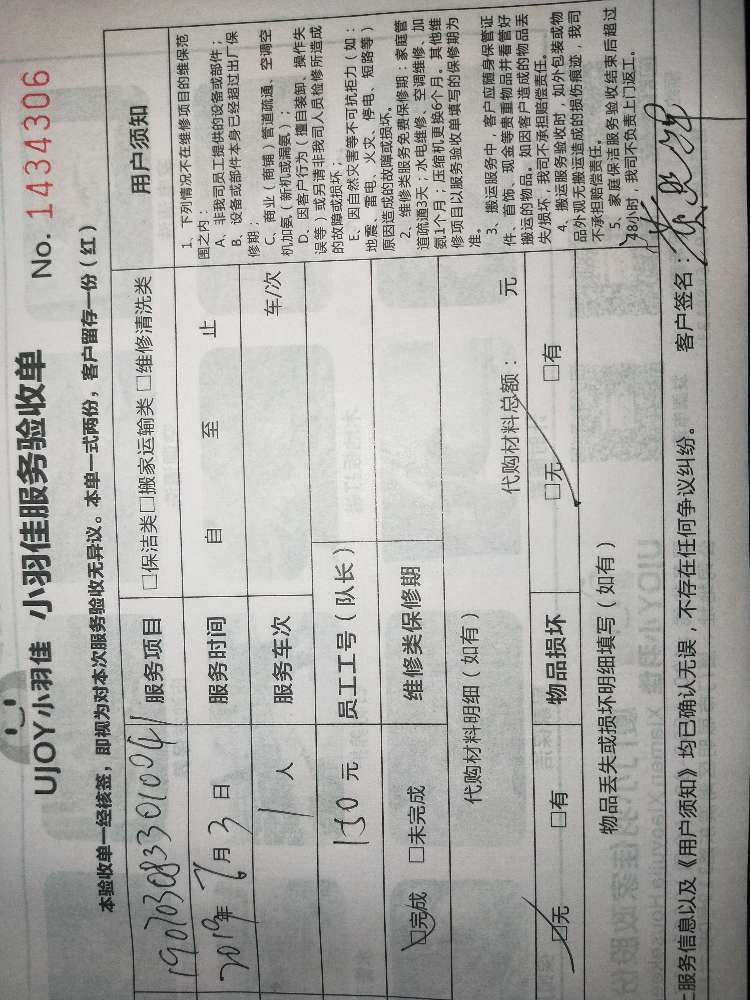 UJOY小羽佳 小羽佳服务验收单 No. 1434306
本验收单一经核签，即视为对本次服务验收无异议。本单一式两份，客户留存一份（红）
服务项目 □保洁类□搬家运输类 □维修清洗类
2019年7月3日 服务时间 自 至 止
1 人 服务车次 车/次
150 元 员工工号（队长）
□完成 □未完成 维修类保修期
代购材料明细（如有） 代购材料总额： 元
□无 □有 物品损坏 □无 □有
物品丢失或损坏明细填写（如有）
用户须知
1、下列情况不在维修项目的维保范
围之内：
A、非我司员工提供的设备或部件；
B、设备或部件本身已经超过出厂保
修期；
C、商业（商铺）管道疏通、空调空
机加氨（新机或漏氨）；
D、因客户行为（擅自装卸、操作失
误等）或另请非我司人员检修所造成
的故障或损坏；
E、因自然灾害等不可抗拒力（如：
地震、雷电、火灾、停电、短路等）
原因造成的故障或损坏。
2、维修类服务免费保修期：家庭管
道疏通3天；水电维修、空调维修、加
氨1个月；压缩机更换6个月。其他维
修项目以服务验收单填写的保修期为
准。
3、搬运服务中，客户应随身保管证
件、首饰、现金等贵重物品并看管好
搬运的物品。如因客户造成的物品丢
失/损坏，我司不承担赔偿责任。
4、搬运服务验收时，如外包装或物
品外观无搬运造成的损伤痕迹，我司
不承担赔偿责任。
5、家庭保洁服务验收结束后超过
48小时，我司不负责上门返工。
服务信息以及《用户须知》均已确认无误，不存在任何争议纠纷。 客户签名：